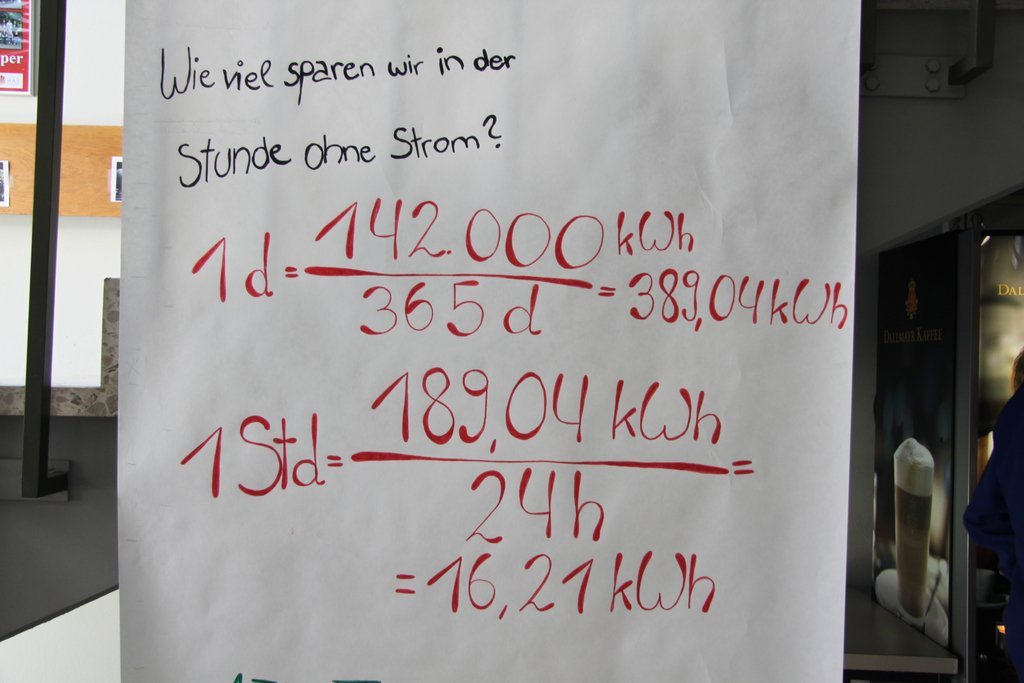 Wie viel sparen wir in der
Stunde ohne Strom?
1 d = 142.000 kWh / 365 d = 389,04 kWh
1 Std = 189,04 kWh / 24 h =
= 16,21 kWh
per
DALLMAYR KAFFEE
DAL